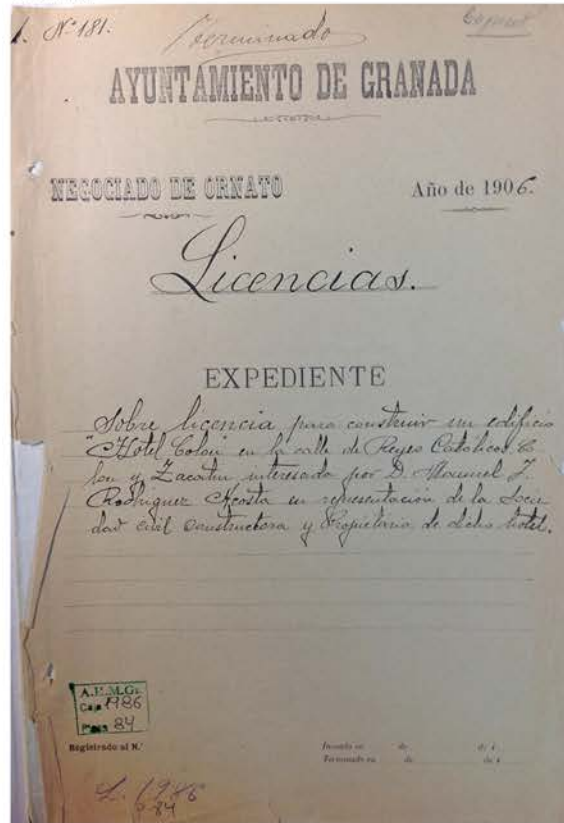 Nº 181.
Terminado
AYUNTAMIENTO DE GRANADA
NEGOCIADO DE ORNATO
Año de 1906.
Licencias.
EXPEDIENTE
Sobre licencia para construir un edificio
"Hotel Colon" en la calle de Reyes Catolicos. Co
lon y Zacatin interesado por D. Manuel J.
Rodriguez Acosta en representacion de la Socie
dad civil Constructora y Propietaria de dicho hotel.
A.H.M.Gr.
Caja 1986
Pieza 84
Registrado al N.º
Incoado en de de 1
Terminado en de de 1
L. 1986
P. 84